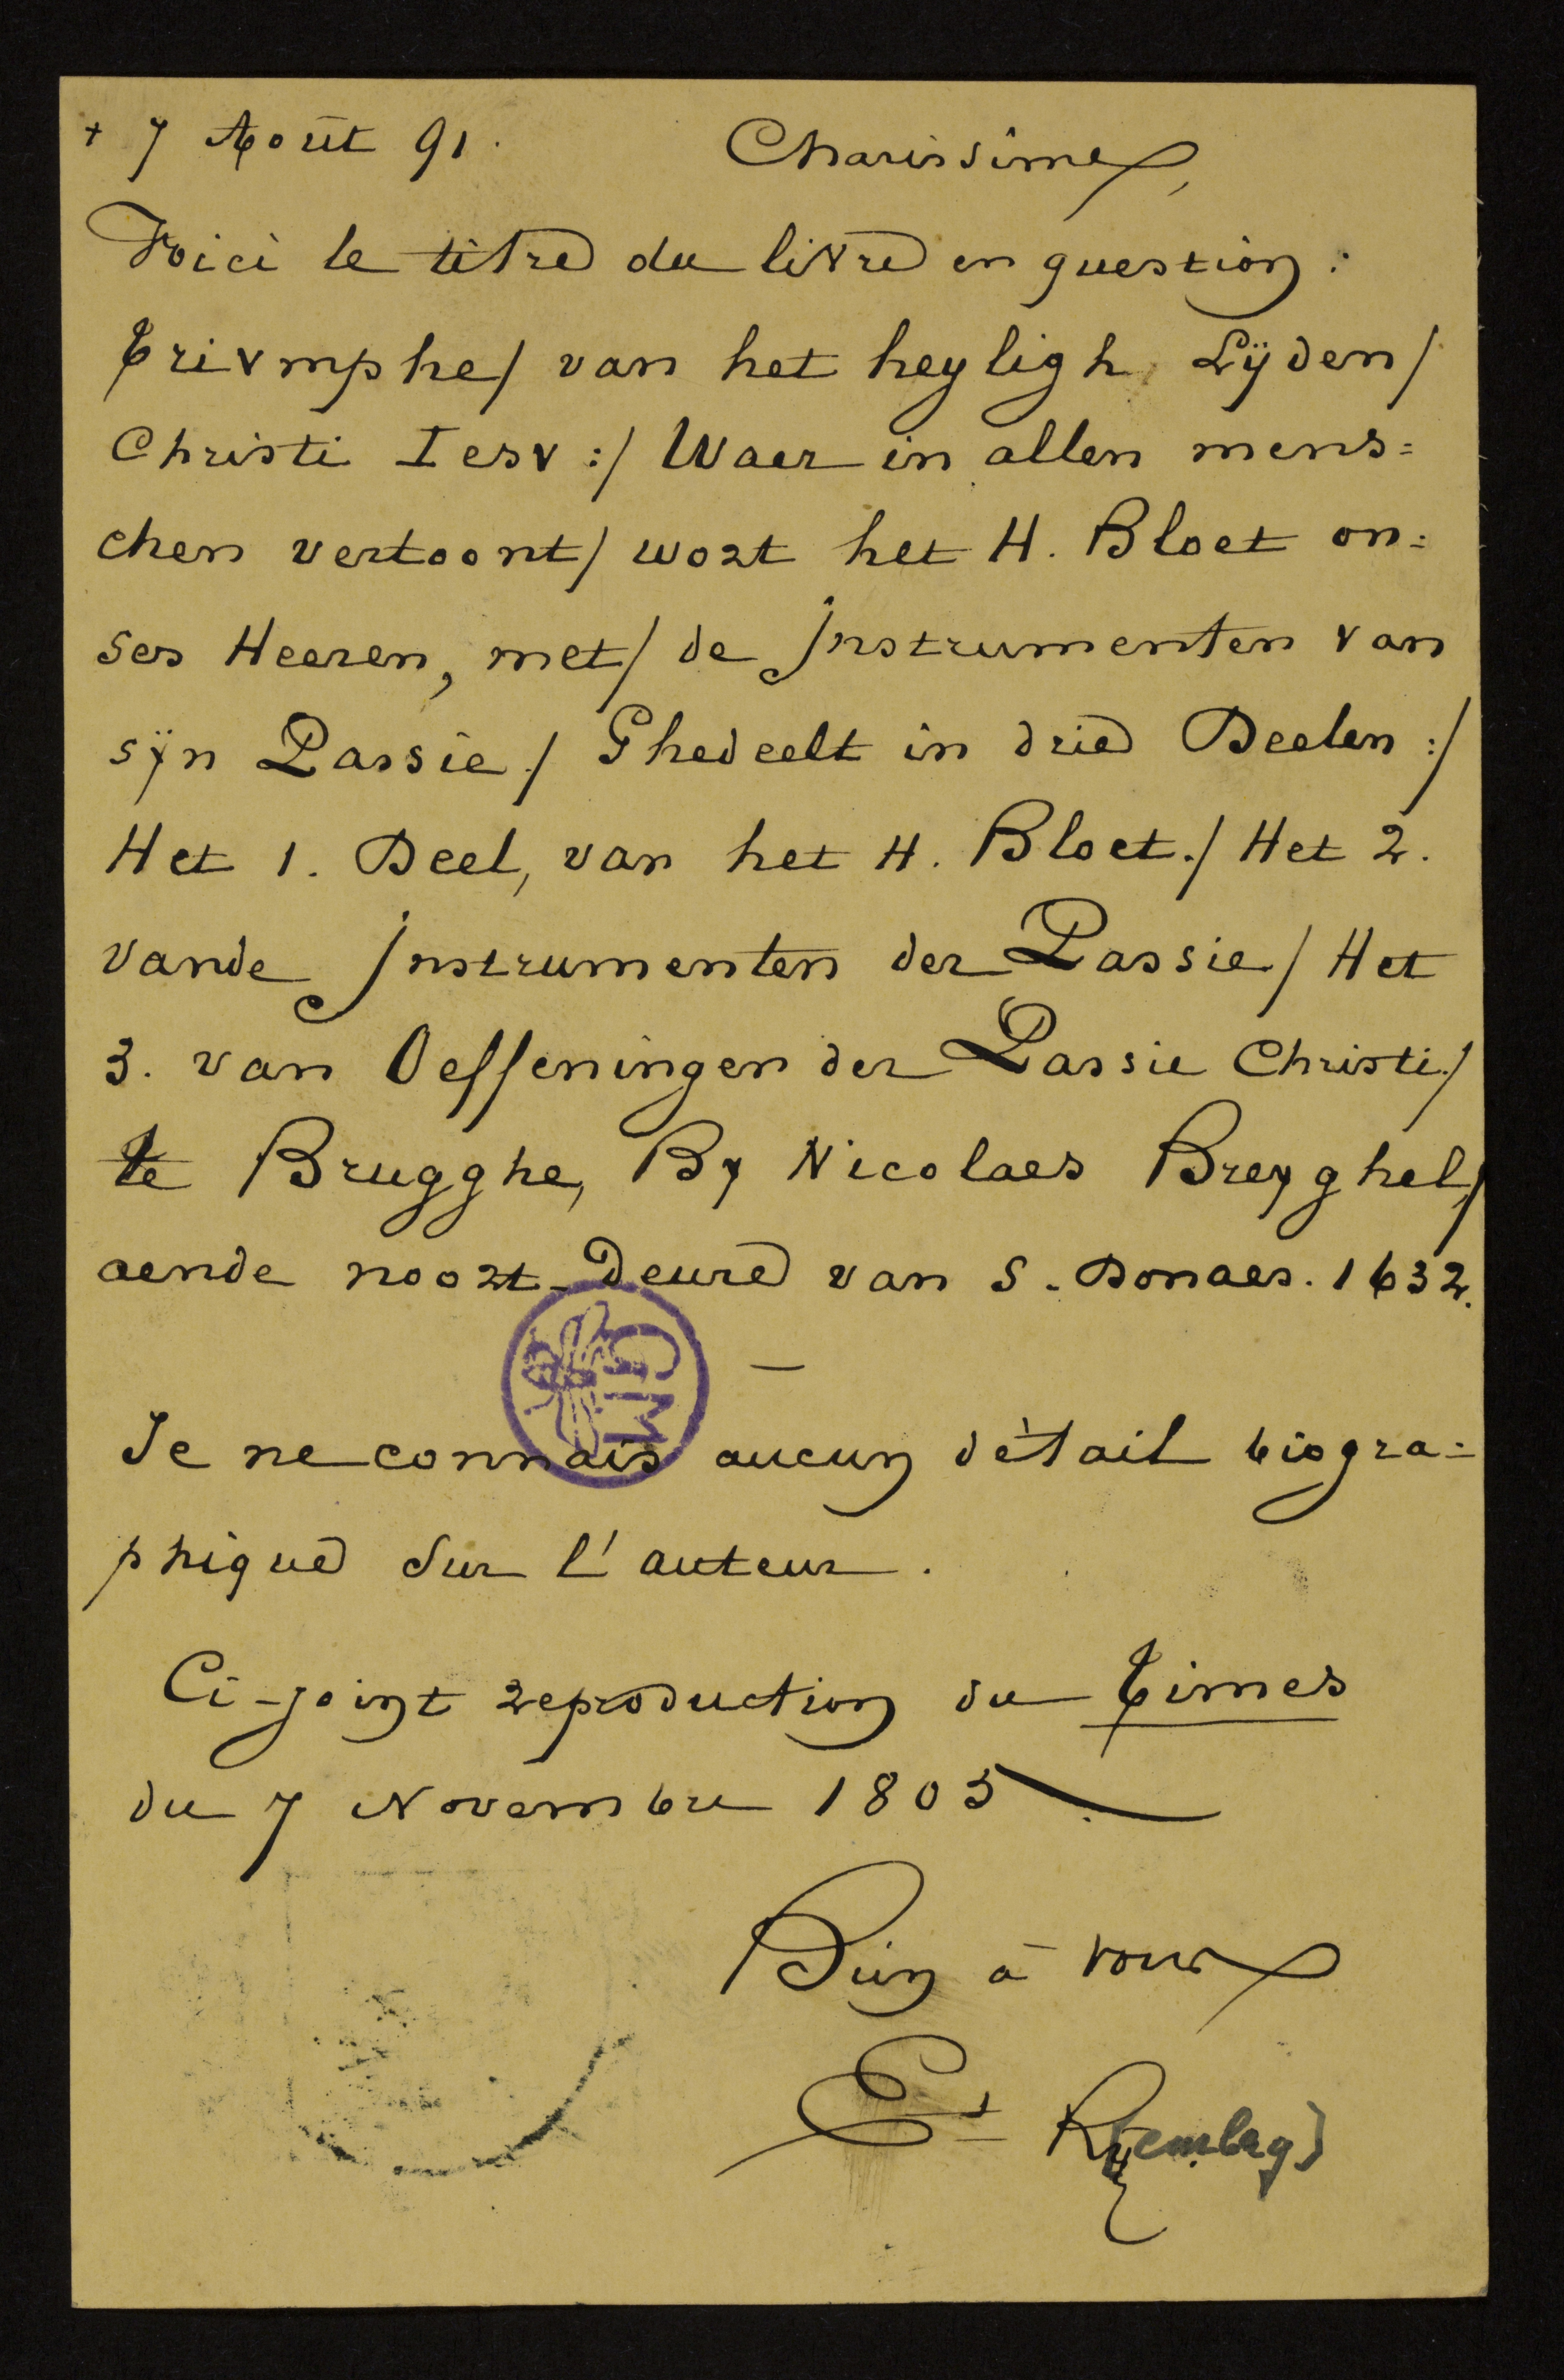 + 7 Août 91. Charissime,
Voici le titre du livre en question :
Trivmphe/ van het heyligh Lÿden/
Christi Iesv :/ Waer in allen mens=
chen vertoont/ wort het H. Bloet on=
ses Heeren, met/ de jnstrumenten van
sÿn Passie./ Ghedeelt in drie Deelen :/
Het 1. Deel, van het H. Bloet./ Het 2.
vande jnstrumenten der Passie/ Het
3. van Oeffeningen der Passie Christi./
te Brugghe, By Nicolaes Breyghel,/
aende noort-Deure van S. Donaes. 1632.
—
GIM
Je ne connais aucun détail biogra=
phique sur l'auteur.
Ci-joint reproduction du Times
du 7 Novembre 1805
Bien à vous
Est R(embry)